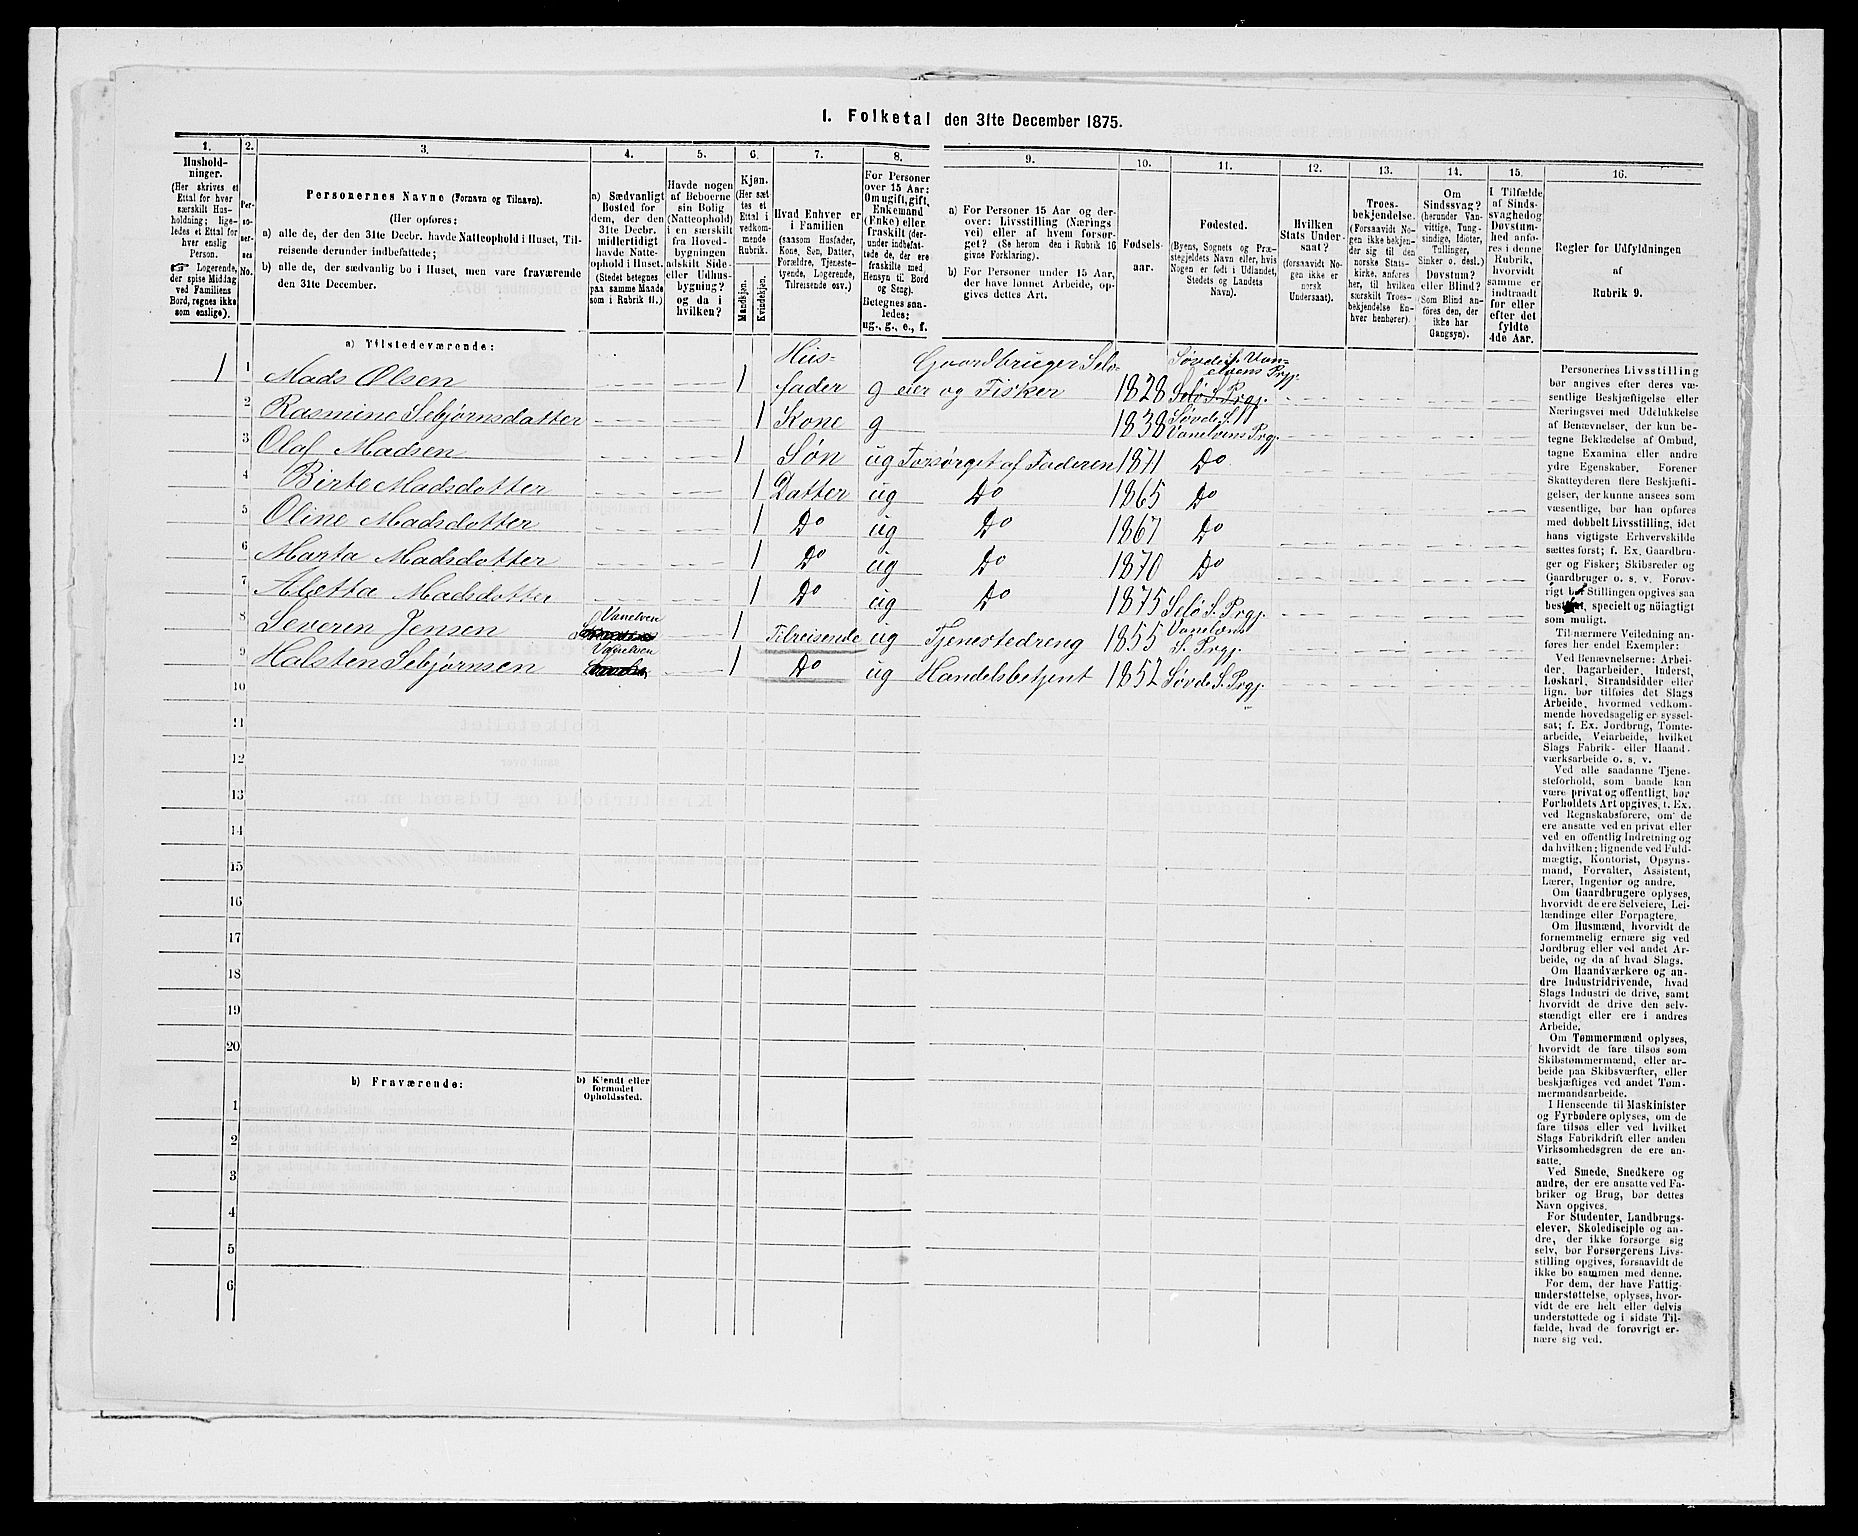 1. Folketal den 31te December 1875.
1. 2. 3. 4. 5. 6. 7. 8. 9. 10. 11. 12. 13. 14. 15. 16.
Hushold-
ninger.
(Her skrives et
Ettal for hver
særskilt Hus-
holdning; lige-
ledes et Ettal for
hver enslig
Person.
☞ Logerende,
der spise Middag
ved Familiens
Bord, regnes ikke
som enslige).
Per-
so-
ner-
nes
No.
Personernes Navne (Fornavn og Tilnavn).
(Her opføres:
a) alle de, der den 31te Decbr. havde Natteophold i Huset, Til-
reisende derunder indbefattede;
b) alle de, der sædvanlig bo i Huset, men vare fraværende
den 31te December.
a) Sædvanligt
Bosted for
dem, der den
31te Decbr.
midlertidigt
havde Natte-
ophold i Huset.
(Stedet betegnes
paa samme Maade
som i Rubrik 11.)
Havde nogen
af Beboerne
sin Bolig
(Natteophold)
i en særskilt
fra Hoved-
bygningen
adskilt Side-
eller Udhus-
bygning?
og da i
hvilken?
Kjøn.
(Her sæt-
tes et
Ettal i
vedkom-
mende
Rubrik.
Mandkjøn.
Kvindekjøn.
Hvad Enhver er
i Familien
(saasom Husfader,
Kone, Søn, Datter,
Forældre, Tjeneste-
tyende, Logerende,
Tilreisende osv.)
For Personer
over 15 Aar:
Om ugift, gift,
Enkemand
(Enke) eller
fraskilt (der-
under indbefat-
tede de, der ere
fraskilte med
Hensyn til Bord
og Seng).
Betegnes saa-
ledes:
ug., g., e., f.
a) For Personer 15 Aar og der-
over: Livsstilling (Nærings-
vei) eller af hvem forsør-
get? (Se herom den i Rubrik 16
givne Forklaring).
b) For Personer under 15 Aar,
der have lønnet Arbeide, op-
gives dettes Art.
Fødsels-
aar.
Fødested.
(Byens, Sognets og Præ-
stegjeldets Navn eller, hvis
Nogen er født i Udlandet,
Stedets og Landets
Navn).
Hvilken
Stats Under-
saat?
(forsaavidt No-
gen ikke er
norsk
Undersaat).
Troes-
bekjendelse.
(Forsaavidt No-
gen ikke bekjen-
der sig til den
norske Stats-
kirke, anføres
her, til hvilken
særskilt Troes-
bekjendelse En-
hver henhører).
Om
Sindssvag?
(herunder Van-
vittige, Tung-
sindige, Idioter,
Tullinger,
Sinker o. desl.)
Døvstum?
eller Blind?
(Som Blind an-
føres den, der
ikke har
Gangsyn).
I Tilfælde
af Sinds-
svaghed og
Døvstum-
hed anfø-
res i denne
Rubrik,
hvorvidt
samme er
indtraadt
før eller
efter det
fyldte
4de Aar.
Regler for Udfyldningen
af
Rubrik 9.
a) Tilstedeværende:
1 1 Mads Olsen 1 Hus-
fader g Gaardbruger Selv-
eier og Fisker 1828 Søvde S. Van-
elvens Prgj.
Selø S. Prgj.
2 Rasmine Sebjørnsdatter 1 Kone g 1838 Søvde S.
Vanelvens Prgj.
3 Olaf Madsen 1 Søn ug Forsørget af Faderen 1871 Do
4 Birte Madsdatter 1 Datter ug Do 1865 Do
5 Oline Madsdatter 1 Do ug Do 1867 Do
6 Marta Madsdatter 1 Do ug Do 1870 Do
7 Aletta Madsdatter 1 Do ug Do 1875 Selø S. Prgj.
8 Severen Jensen Vanelven 1 Tilreisende ug Tjenestedreng 1855 Vanelvens
S. Prgj.
9 Halsten Sebjørnsen Vanelven 1 Do ug Handelsbetjent 1852 Søvde S. Prgj.
10
11
12
13
14
15
16
17
18
19
20
b) Fraværende:
b) Kjendt eller
formodet
Opholdssted.
1
2
3
4
5
6
Personernes Livsstilling
bør angives efter deres væ-
sentlige Beskjæftigelse eller
Næringsvei med Udelukkelse
af Benævnelser, der kun be-
tegne Beklædelse af Ombud,
tagne Examina eller andre
ydre Egenskaber. Forener
Skatteyderen flere Beskjæfti-
gelser, der kunne ansees som
væsentlige, bør han opføres
med dobbelt Livsstilling, idet
hans vigtigste Erhvervskilde
sættes først; f. Ex. Gaardbru-
ger og Fisker; Skibsreder og
Gaardbruger o. s. v. Forøv-
rigt bør Stillingen opgives saa
bestemt, specielt og nöiagtigt
som muligt.
Til nærmere Veiledning an-
føres her endel Exempler:
Ved Benævnelserne: Arbei-
der, Dagarbeider, Inderst,
Løskarl, Strandsidder eller
lign. bør tilføies det Slags
Arbeide, hvormed vedkom-
mende hovedsagelig er syssel-
sat; f. Ex. Jordbrug, Tomte-
arbeide, Veiarbeide, hvilket
Slags Fabrik- eller Haand-
værksarbeide o. s. v.
Ved alle saadanne Tjene-
steforhold, som baade kan
være privat og offentligt, bør
Forholdets Art opgives, t. Ex.
ved Regnskabsførere, om de
ere ansatte ved en privat eller
ved en offentlig Indretning og
da hvilken; lignende ved Fuld-
mægtig, Kontorist, Opsyns-
mand, Forvalter, Assistent,
Lærer, Ingeniør og andre.
Om Gaardbrugere oplyses,
hvorvidt de ere Selveiere, Lei-
lændinge eller Forpagtere.
Om Husmænd, hvorvidt de
fornemmelig ernære sig ved
Jordbrug eller ved andet Ar-
beide, og da af hvad Slags.
Om Haandværkere og an-
dre Industridrivende, hvad
Slags Industri de drive, samt
hvorvidt de drive den selv-
stændigt eller ere i andres
Arbeide.
Om Tømmermænd oplyses,
hvorvidt de fare tilsøs som
Skibstømmermænd, eller ar-
beide paa Skibsværfter, eller
beskjæftiges ved andet Tøm-
mermandsarbeide.
I Henseende til Maskinister
og Fyrbødere oplyses, om de
fare tilsøs eller ved hvilket
Slags Fabrikdrift eller anden
Virksomhedsgren de ere an-
satte.
Ved Smede, Snedkere og
andre, der ere ansatte ved Fa-
briker og Brug, bør dettes
Navn opgives.
For Studenter, Landbrugs-
elever, Skoledisciple og an-
dre, der ikke forsørge sig
selv, bør Forsørgerens Livs-
stilling opgives, forsaavidt de
ikke bo sammen med denne.
For dem, der have Fattig-
understøttelse, oplyses, hvor-
vidt de ere helt eller delvis
understøttede og i sidste Til-
fælde, hvad de forøvrigt er-
nære sig ved.